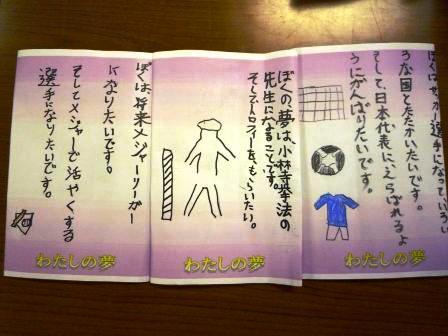 ぼくは、サッカー選手になって、いろい
ろな国とたたかいたいです。
そして、日本代表に、えらばれるよ
うにがんばりたいです。
わたしの夢
ぼくの、夢は、小林寺拳法の
先生になることです。
そしてトロフィーを、もらいたい。
わたしの夢
ぼくは、将来メジャーリーガー
になりたいです。
そしてメジャーで活やくする
選手になりたいです。
わたしの夢